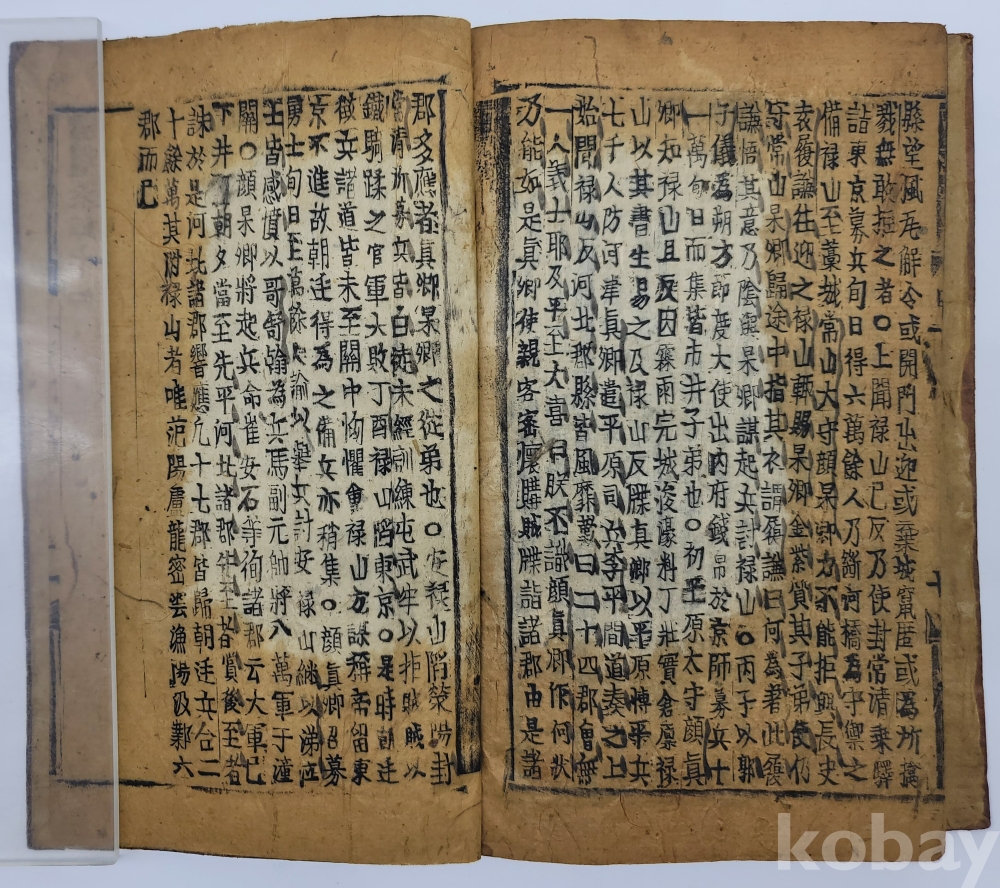 縣望風瓦解令或開門出迎或棄城竄匿或爲所擒
戮無敢拒之者○上聞祿山已反乃使封常淸乘驛
詣東京募兵旬日得六萬餘人乃斷河橋爲守禦之
備祿山至藁城常山大守顔杲卿力不能拒與長史
袁履謙往迎之祿山輒賜杲卿金紫質其子弟使仍
守常山杲卿歸途中指其衣謂履謙曰何爲著此履
謙悟其意乃陰與杲卿謀起兵討祿山○丙子以郭
子儀爲朔方節度大使出內府錢帛於京師募兵十
一萬旬日而集皆市井子弟也○初平原太守顔眞
卿知祿山且反因霖雨完城浚濠料丁壯實倉廩祿
山以其書生易之及祿山反牒眞卿以平原博平兵
七千人防河津眞卿遣平原司兵李平間道奏之上
始聞祿山反河北郡縣皆風靡歎曰二十四郡曾無
一人義士耶及平至大喜曰朕不識顔眞卿作何狀
乃能如是眞卿使親客密懷購賊牒詣諸郡由是諸
郡多應者眞卿杲卿之從弟也○安祿山陷滎陽封
常淸所募兵皆白徒未經訓練屯武牢以拒賊賊以
鐵騎蹂之官軍大敗丁酉祿山陷東京○是時朝廷
徵兵諸道皆未至關中恟懼會祿山方謀稱帝留東
京不進故朝廷得爲之備兵亦稍集○顔眞卿召募
勇士旬日至萬餘人諭以擧兵討安祿山繼以涕泣
士皆感憤以哥舒翰爲兵馬副元帥將八萬軍于潼
關○顔杲卿將起兵命崔安石等徇諸郡云大軍已
下井陘朝夕當至先平河北諸郡先至者賞後至者
誅於是河北諸郡響應凡十七郡皆歸朝廷兵合二
十餘萬其附祿山者唯范陽盧龍密雲漁陽汲鄴六
郡而已
kobay